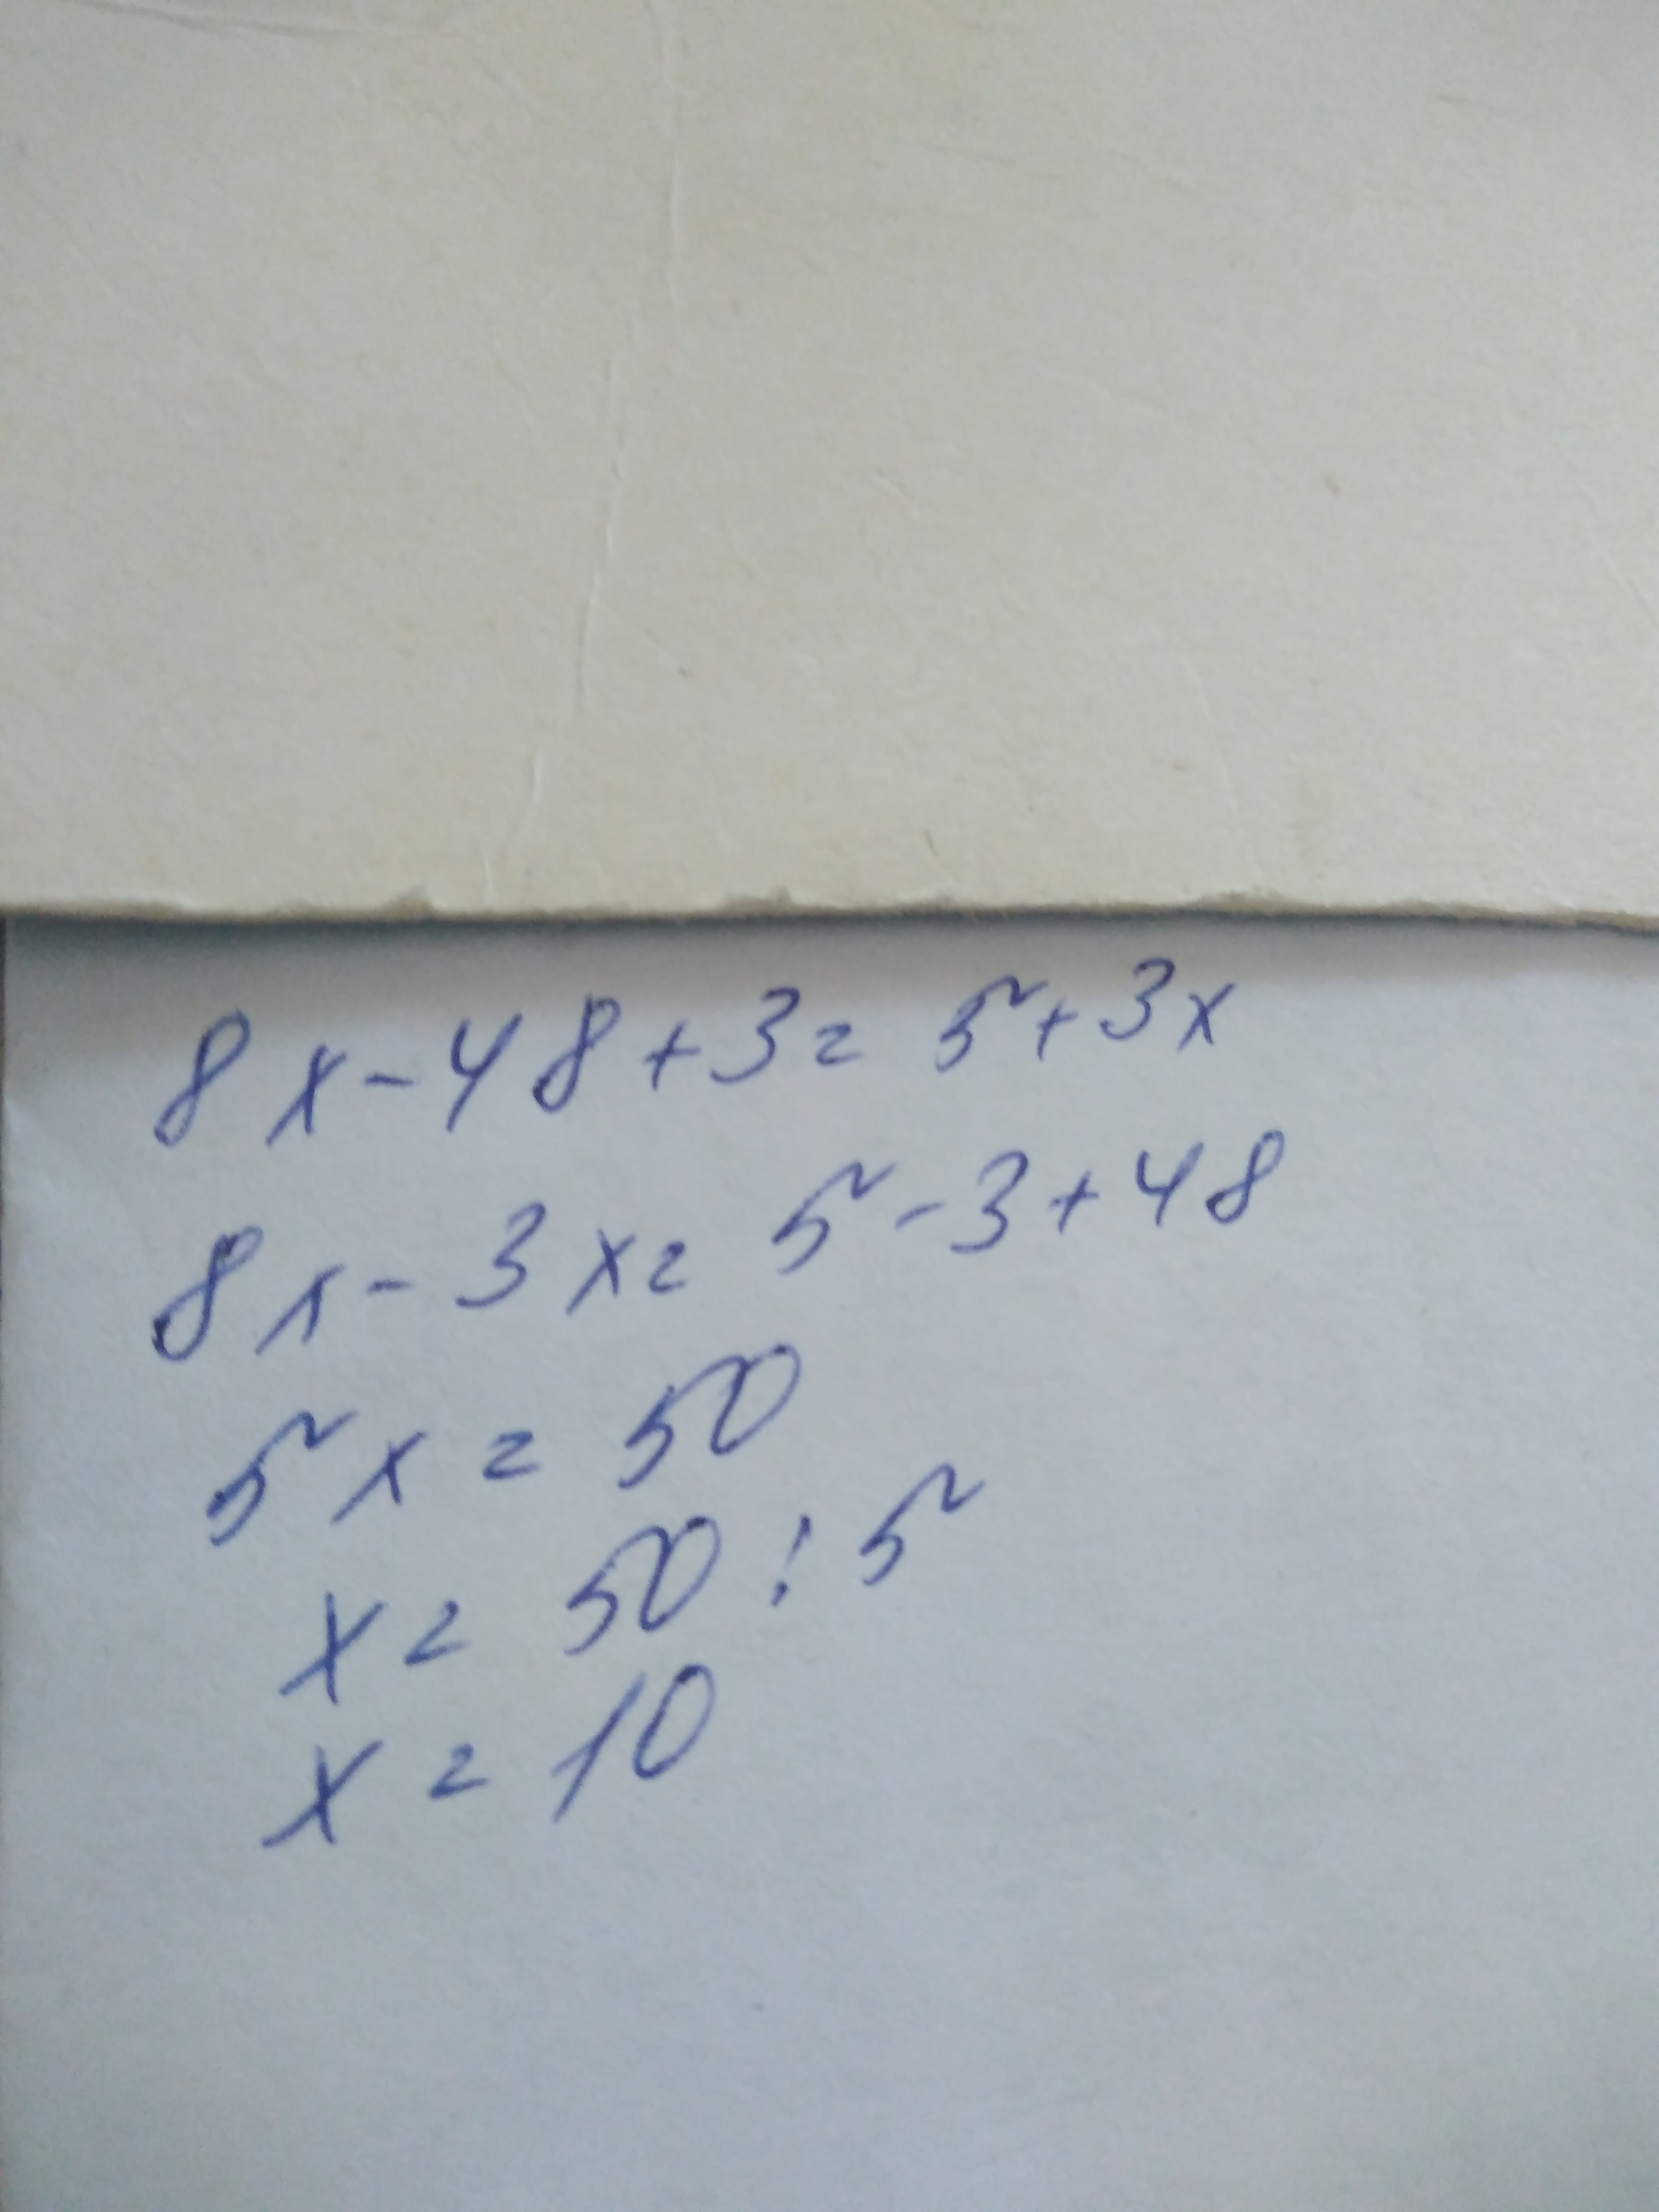 8x-48+3=5+3x
8x-3x=5-3+48
5x=50
x=50:5
x=10